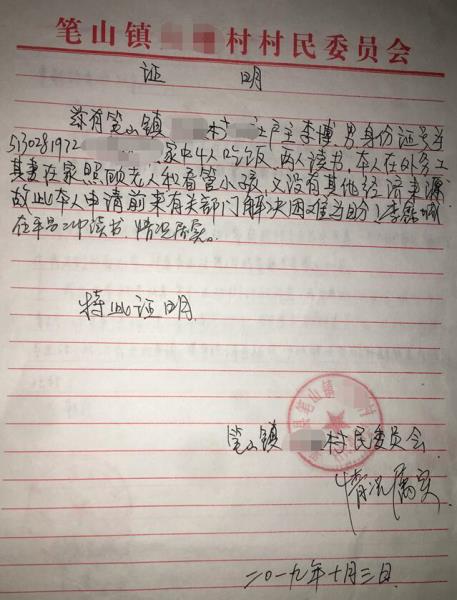 笔山镇村村民委员会
证 明
兹有笔山镇 村 社户主李博,男,身份证号为
5130281972 家中4人吃饭,两人读书,本人在外务工
其妻在家照顾老人和看管小孩,又没有其他经济来源
故此本人申请前来有关部门解决困难为盼!李
在平昌二中读书,情况属实。
特此证明
县笔山镇 村
笔山镇 村民委员会
情况属实
二〇一九年十月三日